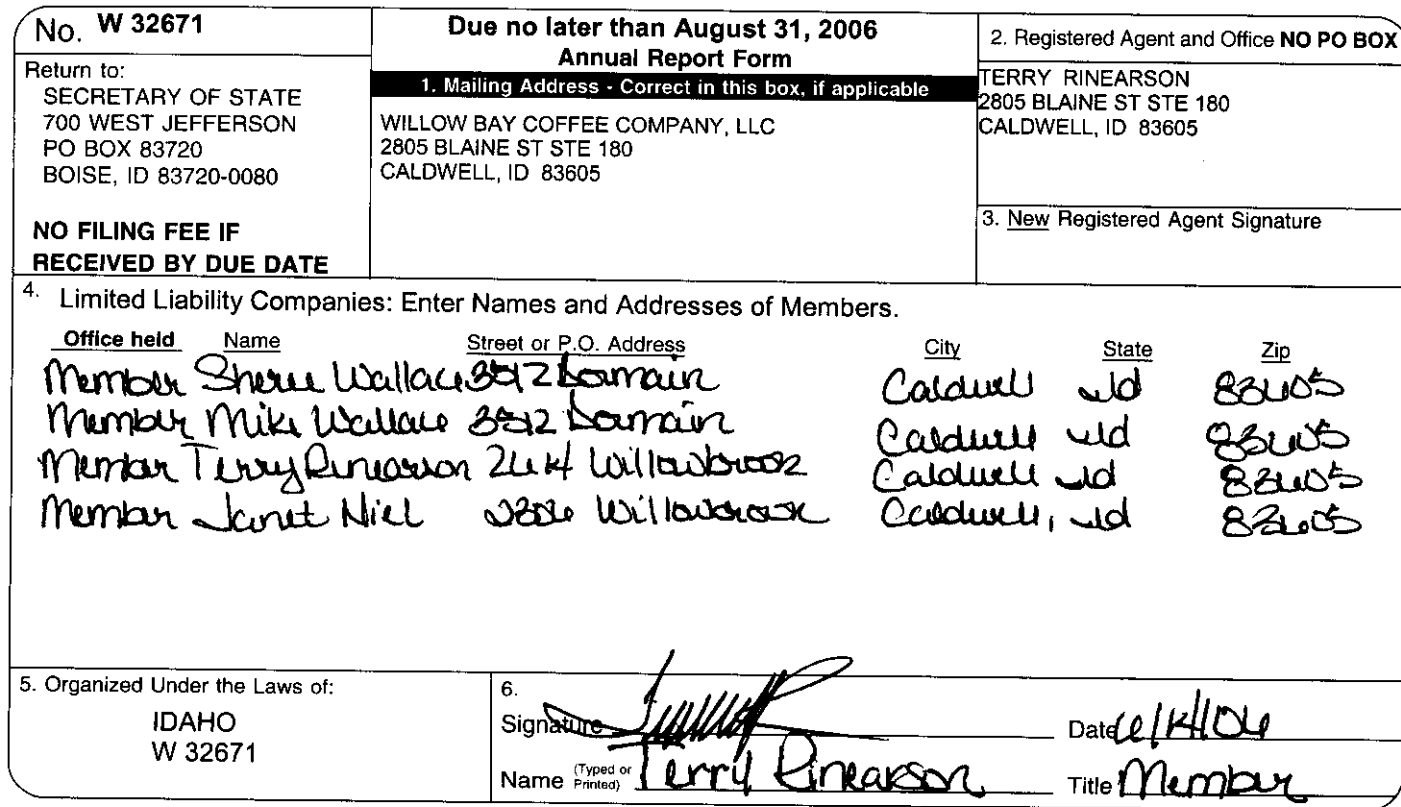 No. W 32671
Return to:
SECRETARY OF STATE
700 WEST JEFFERSON
PO BOX 83720
BOISE, ID 83720-0080
NO FILING FEE IF
RECEIVED BY DUE DATE
Due no later than August 31, 2006
Annual Report Form
1. Mailing Address - Correct in this box, if applicable
WILLOW BAY COFFEE COMPANY, LLC
2805 BLAINE ST STE 180
CALDWELL, ID 83605
2. Registered Agent and Office NO PO BOX
TERRY RINEARSON
2805 BLAINE ST STE 180
CALDWELL, ID 83605
3. New Registered Agent Signature
4. Limited Liability Companies: Enter Names and Addresses of Members.
Office held Name Street or P.O. Address City State Zip
Member Wallace 3512 Caldwell Id 83605
Member Mike Wallace 3512 Caldwell Id 83605
Member Terry Rinearson Willowbrook Caldwell Id 83605
Member Janet Niel Willowbrook Caldwell, Id 83605
5. Organized Under the Laws of:
IDAHO
W 32671
6.
Signature Date
Name (Typed or Printed) Terry Rinearson Title Member